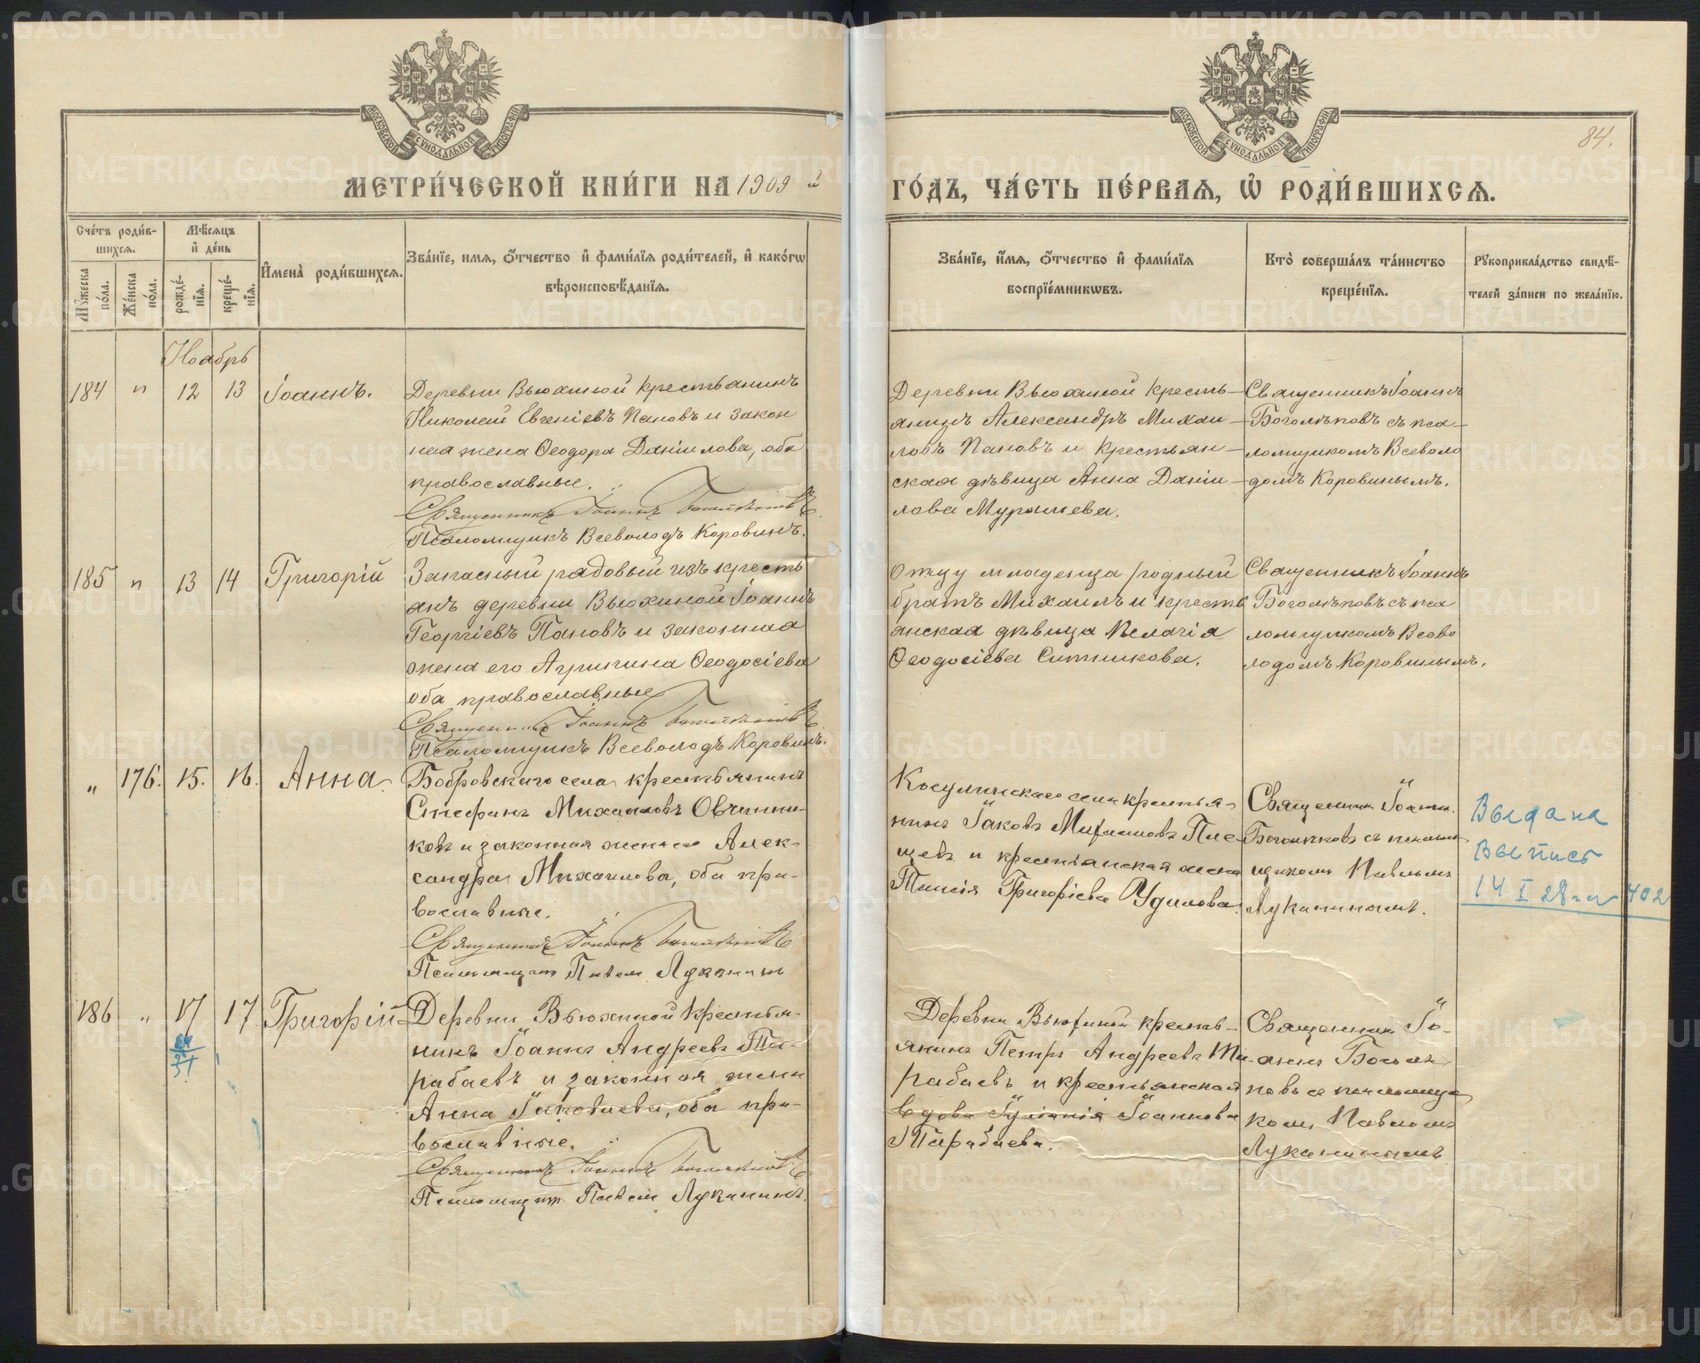 84.
МЕТРИ́ЧЕСКОЙ КНИ́ГИ НА 1909 й
ГО́ДЪ, ЧА́СТЬ ПЕ́РВАЯ, Ѽ РОДИ́ВШИХСѦ.
Сче́тъ роди́в-
шихсѧ.
Мѣ́сѧцъ
и҆ де́нь
Мꙋ́жеска
по́ла.
Же́нска
по́ла.
рожде́-
нїѧ.
креще́-
нїѧ.
И҆мена̀ роди́вшихсѧ.
Зва́нїе, имѧ, ѻ҆́тчество и҆ фами́лїѧ роди́телей, и҆ како́гѡ
вѣроисповѣ́данїѧ.
Зва́нїе, и҆́мѧ, ѻ҆́тчество и҆ фами́лїѧ
воспрїе́мникѡвъ.
Кто̀ соверша́лъ та́инство
креще́нїѧ.
Рꙋкоприкла́дство свидѣ́-
телей за́писи по жела́нїю.
Ноябрь
184 " 12 13 Іоаннъ.
Деревни Вьюхиной крестьянинъ
Николай Евгеніевъ Пановъ и закон
ная жена Ѳеодора Даніилова, оба
православные.
Священникъ Іоаннъ Боголѣповъ
Псаломщикъ Всеволодъ Коровинъ.
Деревни Вьюхиной кресть-
янинъ Александръ Михаи-
ловъ Пановъ и крестьян-
ская дѣвица Анна Даніи-
лова Мурашева.
Священникъ Іоаннъ
Боголѣповъ съ пса-
ломщикомъ Всеволо
домъ Коровинымъ.
185 " 13 14 Григорій
Запасный рядовый изъ кресть
янъ деревни Вьюхиной Іоаннъ
Георгіевъ Пановъ и законная
жена его Агрипина Ѳеодосіева
оба православные
Священникъ Іоаннъ Боголѣповъ
Псаломщикъ Всеволодъ Коровинъ.
Отцу младенца родный
братъ Михаилъ и кресть
янская дѣвица Пелагія
Ѳеодосіева Ситникова.
Священникъ Іоаннъ
Боголѣповъ съ пса
ломщикомъ Всево
лодомъ Коровинымъ.
" 176. 15. 16. Анна.
Бобровскаго села крестьянинъ
Стефанъ Михаиловъ Овчинни-
ковъ и законная жена его Алек-
сандра Михаилова, оба пра-
вославные.
Священникъ Іоаннъ Боголѣповъ
Псаломщикъ Павелъ Луканинъ
Косулинскаго села крестья-
нинъ Іаковъ Михаиловъ Пле-
щевъ и крестьянская жена
Таисія Григоріева Удилова.
Священникъ Іоаннъ
Боголѣповъ съ псалом
щикомъ Павломъ
Луканинымъ.
Выдана
выпись
14 I 28 г 402
186 " 17 17 Григорій
Деревни Вьюхиной крестья-
нинъ Іоаннъ Андреевъ Та-
рабаевъ и законная жена
Анна Іаковлева, оба пра-
вославные.
Священникъ Іоаннъ Боголѣповъ
Псаломщикъ Павелъ Луканинъ.
Деревни Вьюхиной кресть-
янинъ Петръ Андреевъ Та-
рабаевъ и крестьянская
вдова Іуліанія Іоаннова
Тарабаева.
Священникъ Іо-
аннъ Боголѣ-
повъ съ псаломщи
комъ Павломъ
Луканинымъ